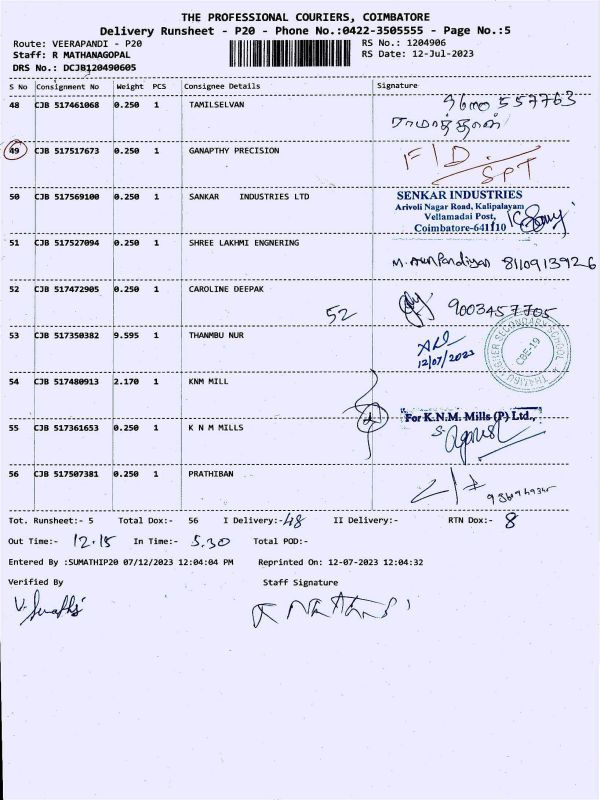 THE PROFESSIONAL COURIERS, COIMBATORE
Delivery Runsheet - P20 - Phone No.:0422-3505555 - Page No.:5
Route: VEERAPANDI - P20 RS No.: 1204906
Staff: R MATHANAGOPAL RS Date: 12-Jul-2023
DRS No.: DCJB120490605
S No Consignment No Weight PCS Consignee Details Signature
48 CJB 517461068 0.250 1 TAMILSELVAN
49 CJB 517517673 0.250 1 GANAPTHY PRECISION F/D SPT
50 CJB 517569100 0.250 1 SANKAR INDUSTRIES LTD SENKAR INDUSTRIES
Arivoli Nagar Road, Kalipalayam
Vellamadai Post,
Coimbatore-641110
51 CJB 517527094 0.250 1 SHREE LAKHMI ENGNERING
M. Arun Pandiyan 8110913926
52 CJB 517472905 0.250 1 CAROLINE DEEPAK
52 9003457705
53 CJB 517350382 9.595 1 THANMBU NUR
12/07/2023
HIGHER SECONDARY SCHOOL CBE-19
54 CJB 517480913 2.170 1 KNM MILL
For K.N.M. Mills (P) Ltd.,
55 CJB 517361653 0.250 1 K N M MILLS
56 CJB 517507381 0.250 1 PRATHIBAN
Tot. Runsheet:- 5 Total Dox:- 56 I Delivery:- 48 II Delivery:- RTN Dox:- 8
Out Time:- 12.15 In Time:- 5.30 Total POD:-
Entered By :SUMATHIP20 07/12/2023 12:04:04 PM Reprinted On: 12-07-2023 12:04:32
Verified By Staff Signature